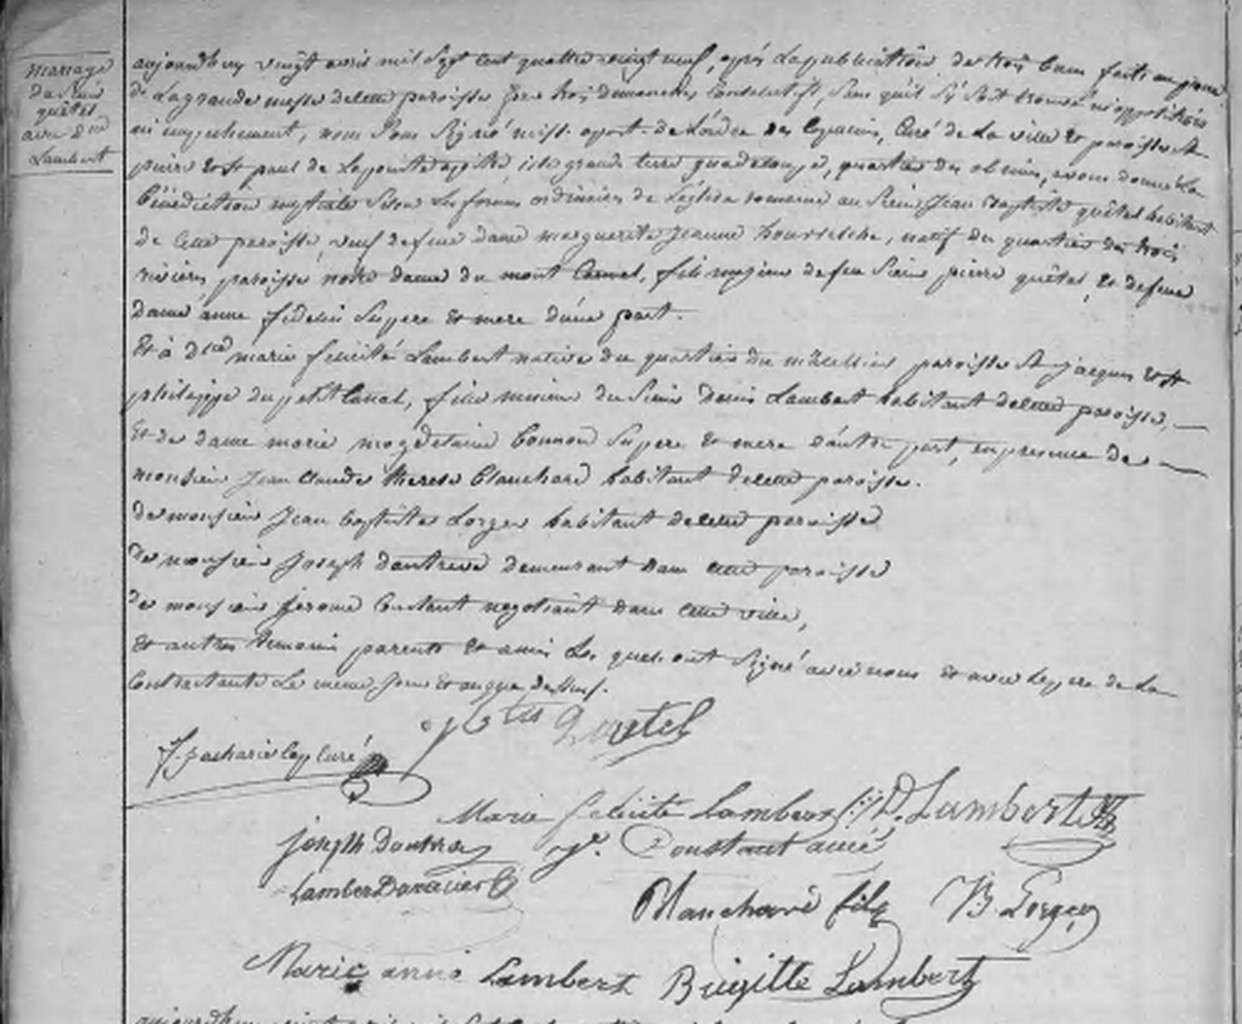 mariage
du Sieur
quêtel
avec dlle
Lambert
aujourdhuy vingt avril mil Sept cent quattre vingt neuf, après Lapublication de trois bans faite au prone
de Lagrande messe decette paroisse par trois dimanches consecutifs, Sans quil Sy Soit trouvé ni opposition
ni empechement, nous Sous Signé miss. apost. de Lordre des Capucins, Curé de La ville et paroisse St
pierre et St paul de Lapointe apitre, isle grande terre guadeloupe, quartier des abimes, avons donné La
Bénédiction nuptiale Selon Les formes ordinaires de Léglise romaine au Sieur Jean Baptiste quêtel habitant
de Cette paroisse, veuf defeue dame marguerite Jeanne, natif du quartier des trois
rivieres paroisse notre dame du mont Carmel, fils majeur defeu Sieur pierre quêtel, et defeue
dame anne Ses pere et mere dune part.
Et à dlle marie felicité Lambert native du quartier du paroisse St jacques et St
philippe du petit Canal, fille mineure du Sieur Lambert habitant decette paroisse,
et de dame marie magdelaine Ses pere et mere dautre part, en presence de
monsieur Jean Claude therese Blanchard habitant decette paroisse.
de monsieur Jean baptiste Lorgea habitant decette paroisse
de monsieur Joseph demeurant dans cette paroisse
de monsieur jerome Constant negotiant dans cette ville,
et autres temoins parents et amis Les quels ont Signé avec nous et avec Le pere de La
Contractante Le meme jour et an que dessus.
Quetel
f. Zacharie Cap curé
Marie felicité Lambert D. Lambert
joseph Jme Constant ainé
Lambert
Blanchard fils JB Lorgea
Marie anne Lambert Brigitte Lambert
aujourdhuy